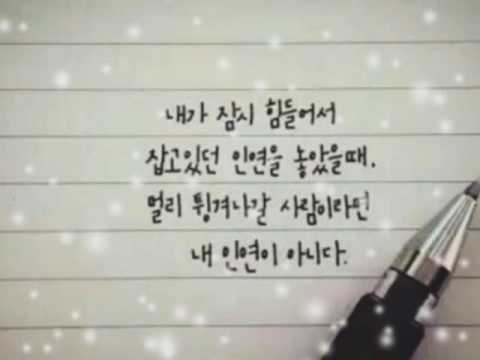 내가 잠시 힘들어서
잡고있던 인연을 놓았을때,
멀리 튕겨나갈 사람이라면
내 인연이 아니다.